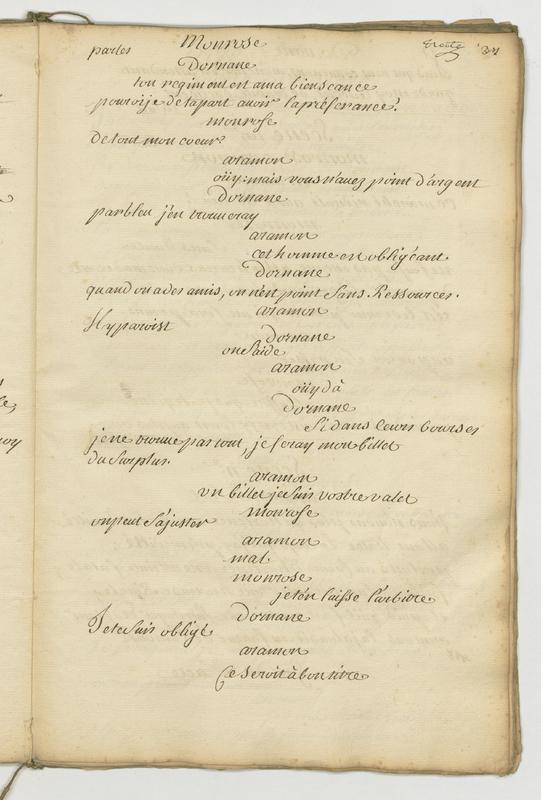 Monrose
parles
Dornane
ton regiment est a ma bienseance
pourois je de ta part avoir la préferance?
monrose
de tout mon coeur?
aramon
oüy: mais vous n'avez point d'argent
Dornane
parbleu j'en trouveray
aramon
cet homme en obligeant.
Dornane
quand on a des amis, on n'est point sans Ressources.
aramon
Il y paroist
Dornane
on s'aide
aramon
oüy dà
Dornane
Si dans leurs bourses
je ne trouve pas tout, je feray mon billet
du surplus.
aramon
un billet je suis vostre valet
monrose
on peut s'ajuster
aramon
mal.
monrose
je t'en laisse l'arbitre.
Dornane
Je te suis obligé
aramon
Ce seroit à bon titre